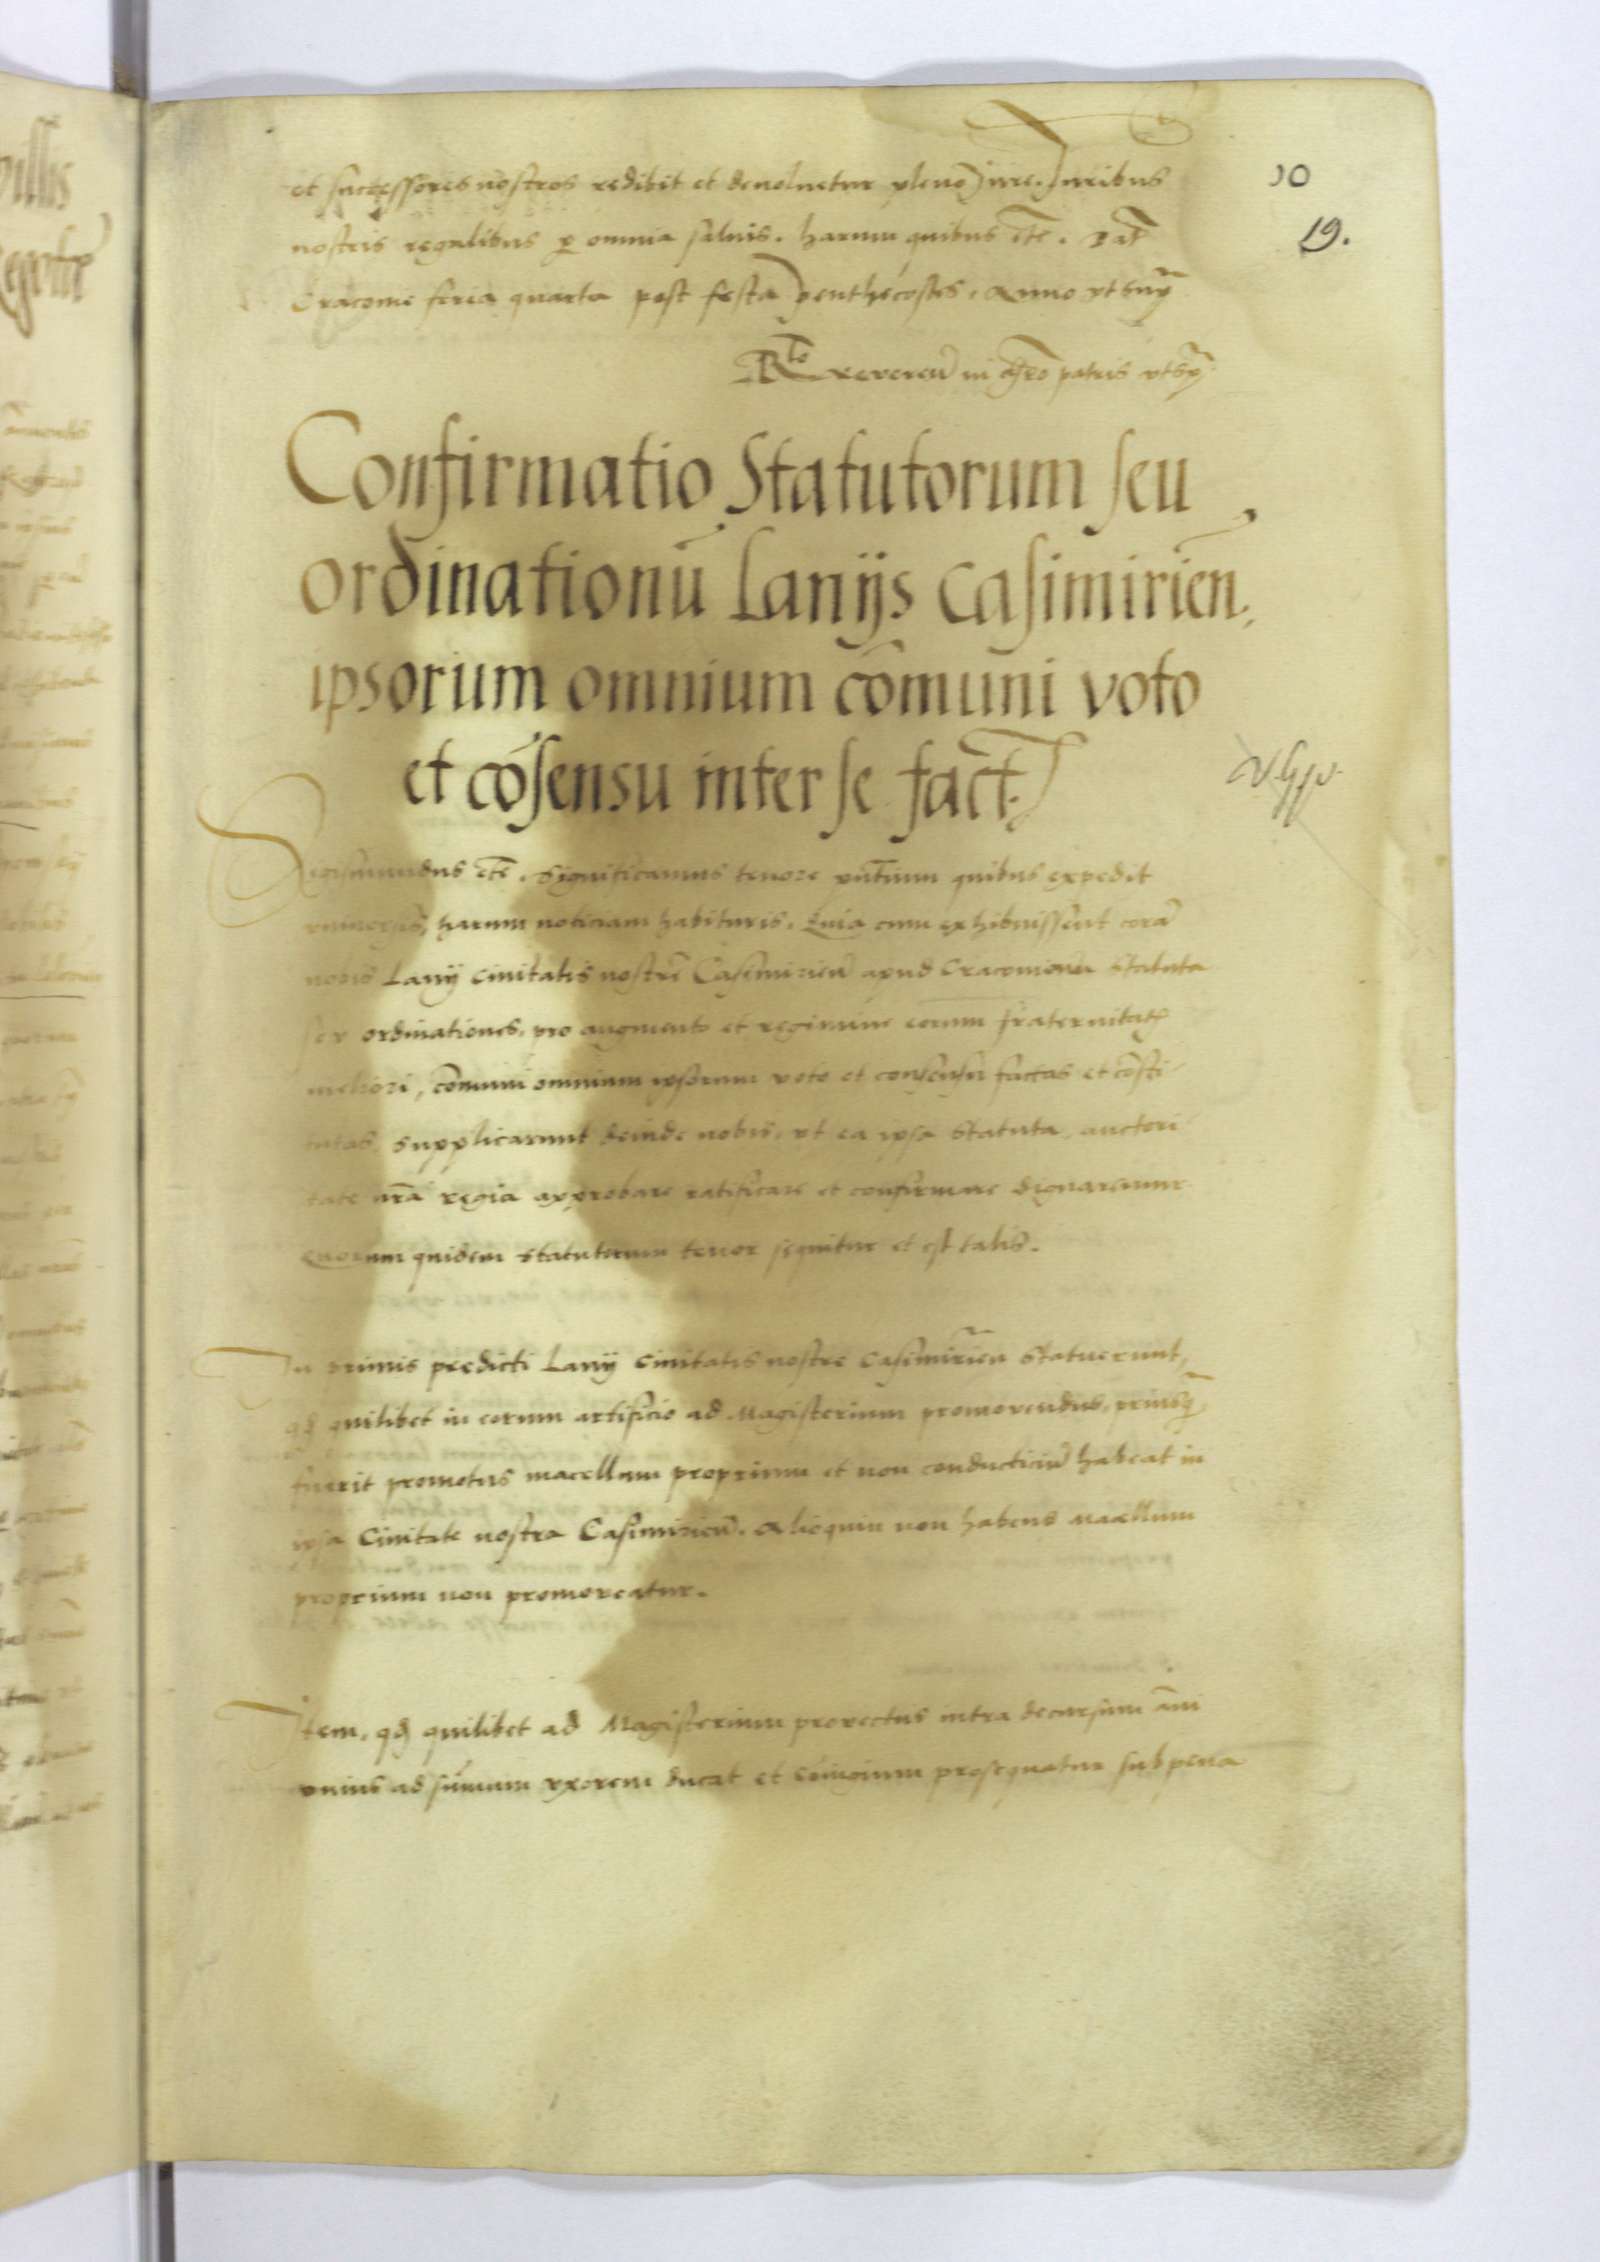 et successores nostros redibit et devoluetur pleno iure. Iuribus
10
nostris regalibus p omnia saluis. harum quibus etc. Dat
19.
Cracouie feria quarta post festa penthecostes. Anno vt supra
Rto reueren in chro patris vt supra
Confirmatio Statutorum seu
ordinationū Lanijs Casimirien.
ipsorum omnium cōmuni voto
et cōsensu inter se fact.
Sigismundus etc. Significamus tenore pntium quibus expedit
vniuersis, harum noticiam habituris. Quia cum exhibuissent corā
nobis Lanij ciuitatis nostre Casimirien apud Cracouiam Statuta
seu ordinationes, pro augmento et regimine eorum fraternitatis
meliori, cōmuni omnium ipsorum voto et consensu factas et cōsti-
tutas, supplicarunt deinde nobis, vt ea ipsa Statuta, auctori-
tate nrā regia approbare ratificare et confirmare dignaremur
Quorum quidem statutorum tenor sequitur et est talis.
In primis predicti Lanij Ciuitatis nostre Casimirien Statuerunt,
qđ quilibet in eorum artificio ad Magisterium promouendus, priusq̄
fuerit promotus macellum proprium et non conducticiū habeat in
ipsa Ciuitate nostra Casimirien. Alioquin non habens macellum
proprium non promoueatur.
Item, qđ quilibet ad Magisterium prouectus intra decursum anni
vnius ad sūmum vxorem ducat et cōiugium prosequatur sub pena